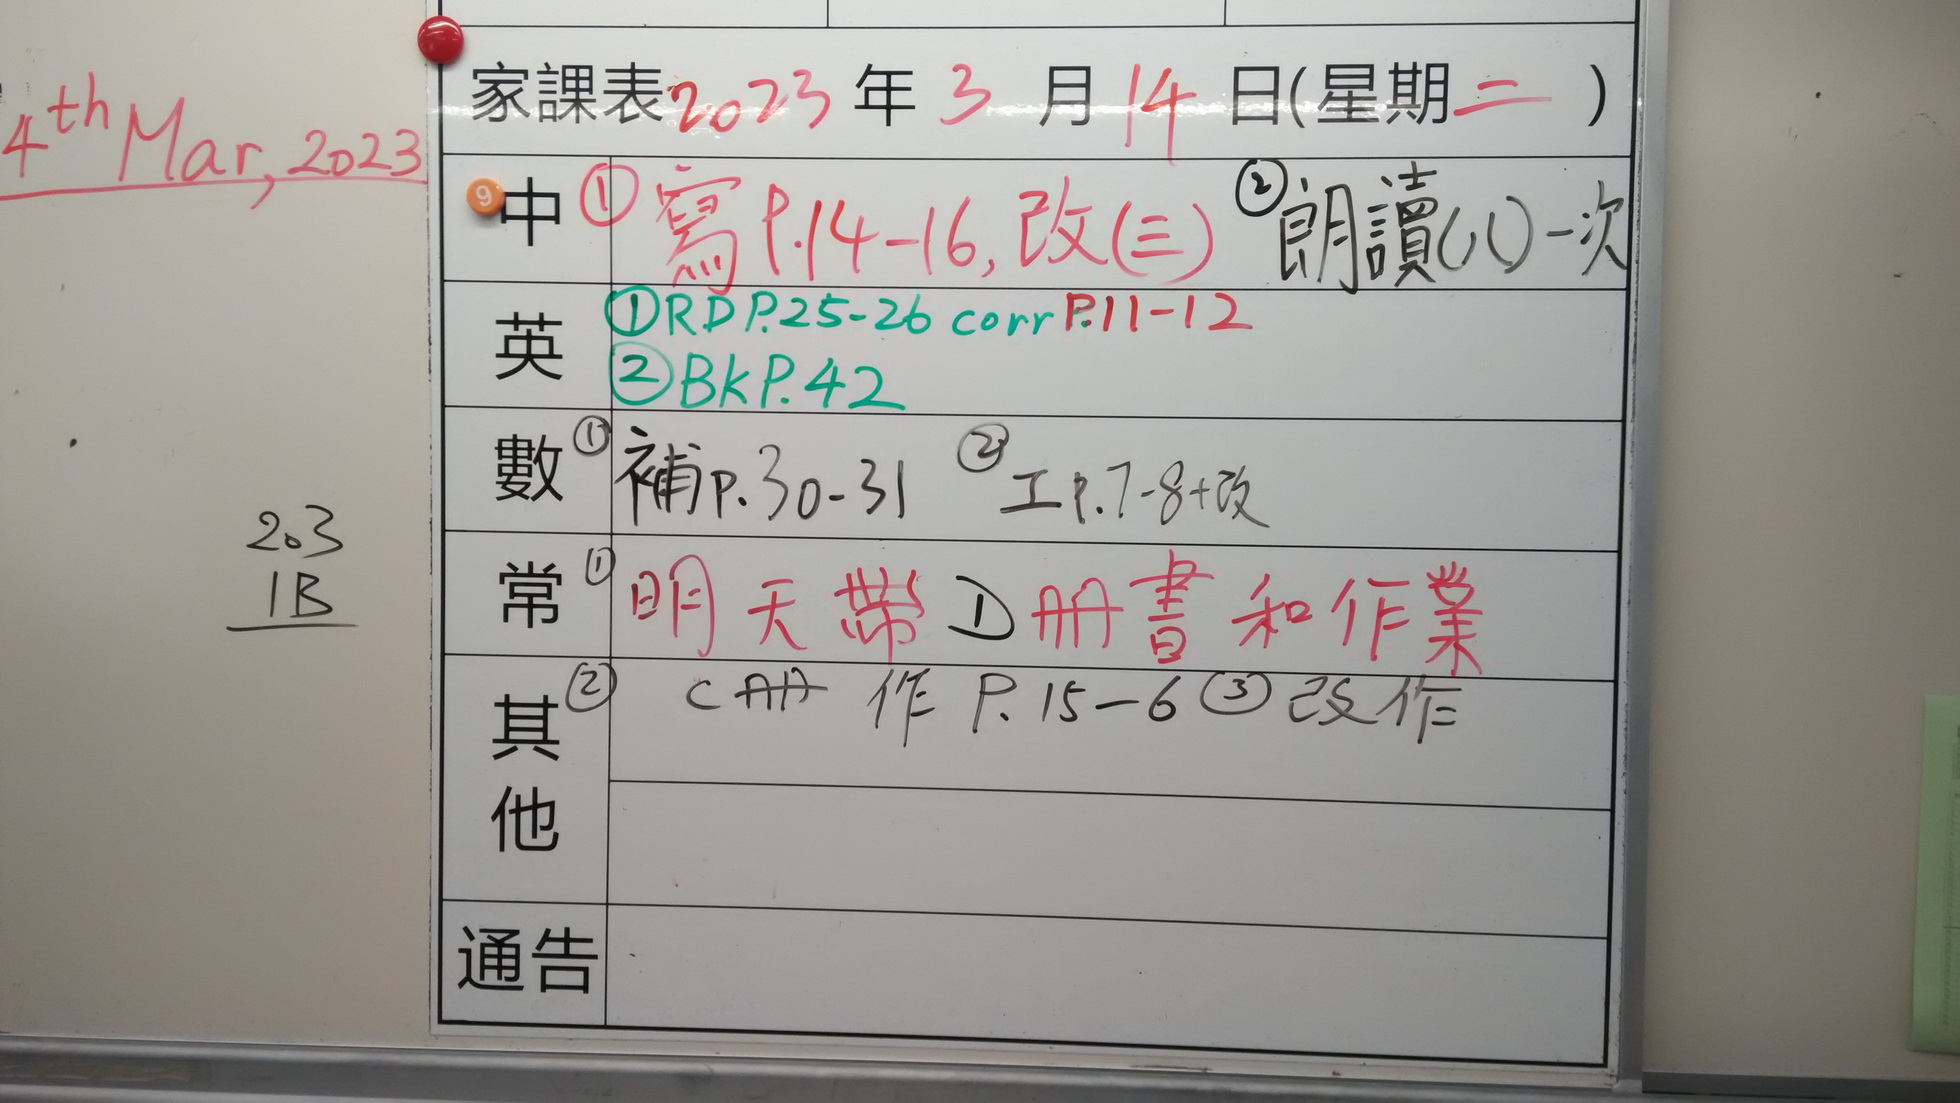 4th Mar, 2023
203
1B
家課表2023年3月14日(星期二)
9
中 ① 寫P.14-16, 改(三) ② 朗讀(八)一次
英 ①RD P.25-26 corr P.11-12
②BK P.42
數 ① 補P.30-31 ② 工P.7-8+改
常 ① 明天帶D冊書和作業
其他 ② C冊 作 P.15-6 ③ 改作
通告